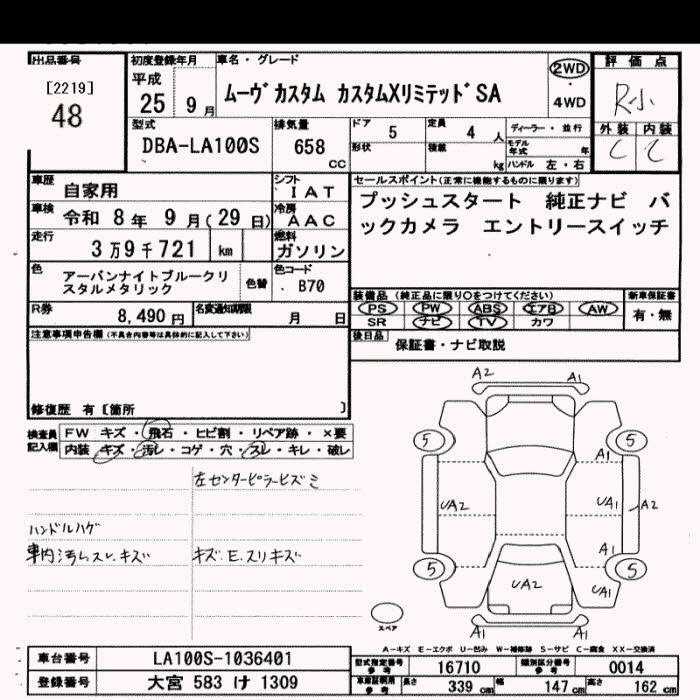 出品番号
[2219]
48
初度登録年月
平成
25 9 月
車名・グレード
ムーヴカスタム カスタムXリミテッドSA
2WD
・
4WD
評価点
R小
外装 内装
C C
型式
DBA-LA100S
排気量
658 cc
ドア 5 定員 4 人
形状 積載 kg
ディーラー・並行
モデル年式 年
ハンドル 左・右
車歴 自家用
シフト IAT
車検 令和 8 年 9 月(29 日)
冷房 AAC
走行 3万9千721 km
燃料 ガソリン
色 アーバンナイトブルークリスタルメタリック
色替
色コード B70
R券 8,490 円
名変通知期限 月 日
セールスポイント(正常に機能するものに限ります)
プッシュスタート 純正ナビ バ
ックカメラ エントリースイッチ
装備品(純正品に限り○をつけてください)
新車保証書
PS PW ABS エアB AW
有・無
SR ナビ TV カワ
後日品 保証書・ナビ取説
注意事項申告欄(不具合内容等は具体的に記入して下さい)
修復歴 有〔箇所 〕
検査員記入欄
FW キズ・飛石・ヒビ割・リペア跡・×要
内装 キズ・汚レ・コゲ・穴・スレ・キレ・破レ
左センターピラーヒズミ
ハンドルハゲ
車内汚レ.スレ.キズ
キズ.E.スリキズ
A2 A1
5 5
A1
UA2 UA1 A2
A1
5 5
UA2 UA1
A1 A1
スペア
A-キズ E-エクボ U-凹ミ W-補修跡 S-サビ C-腐食 XX-交換済
車台番号 LA100S-1036401
登録番号 大宮 583 け 1309
型式指定番号 参考 16710
類別区分番号 参考 0014
車庫証明用 参考 長さ 339 cm 幅 147 cm 高さ 162 cm